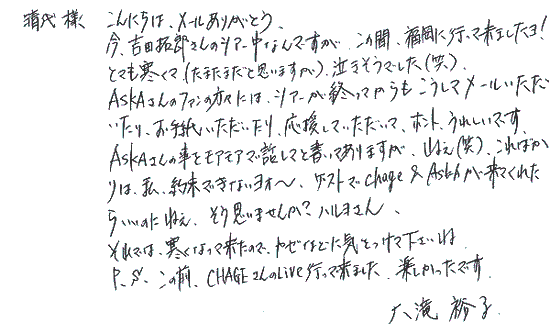 清代様 こんにちは、メールありがとう、
今、吉田拓郎さんのツアー中なんですが、この間、福岡に行って来ましたヨ!
とても寒くて(たまたまだと思いますが)、泣きそうでした(笑)、
ASKAさんのファンの方々には、ツアーが終ってからもこうしてメールいただ
いたり、お手紙いただいたり、応援していただいて、ホント、うれしいです
ASKAさんの事をモアモアで話してと書いてありますが、(笑)、こればか
りは、私、約束できないヨォ〜、ゲストでchage & ASKAが来てくれた
らいいのにねぇ、そう思いませんか?ハルヨさん、
それでは、寒くなって来たので、カゼなどに気をつけて下さいね
P.S. この前、CHAGEさんのLive行って来ました 楽しかったです
大滝裕子